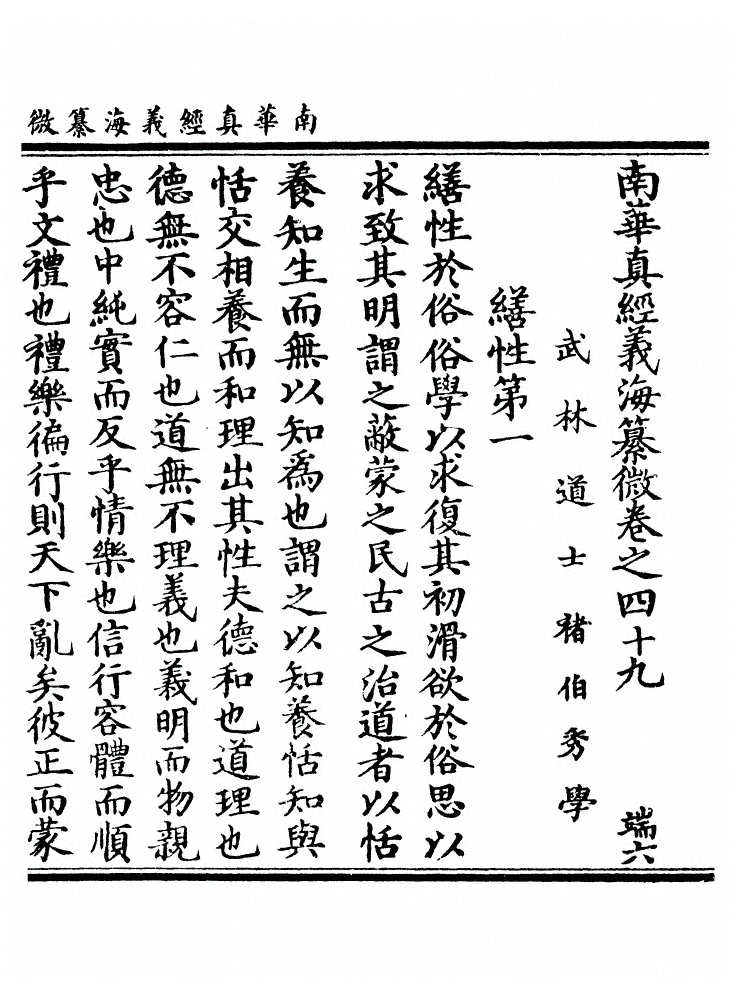 南華真經義海纂微
南華真經義海纂微卷之四十九 端六
武林道士褚伯秀學
繕性第一
繕性於俗俗學以求復其初滑欲於俗思以
求致其明謂之蔽蒙之民古之治道者以恬
養知生而無以知為也謂之以知養恬知與
恬交相養而和理出其性夫德和也道理也
德無不容仁也道無不理義也義明而物親
忠也中純實而反乎情樂也信行容體而順
乎文禮也禮樂徧行則天下亂矣彼正而蒙